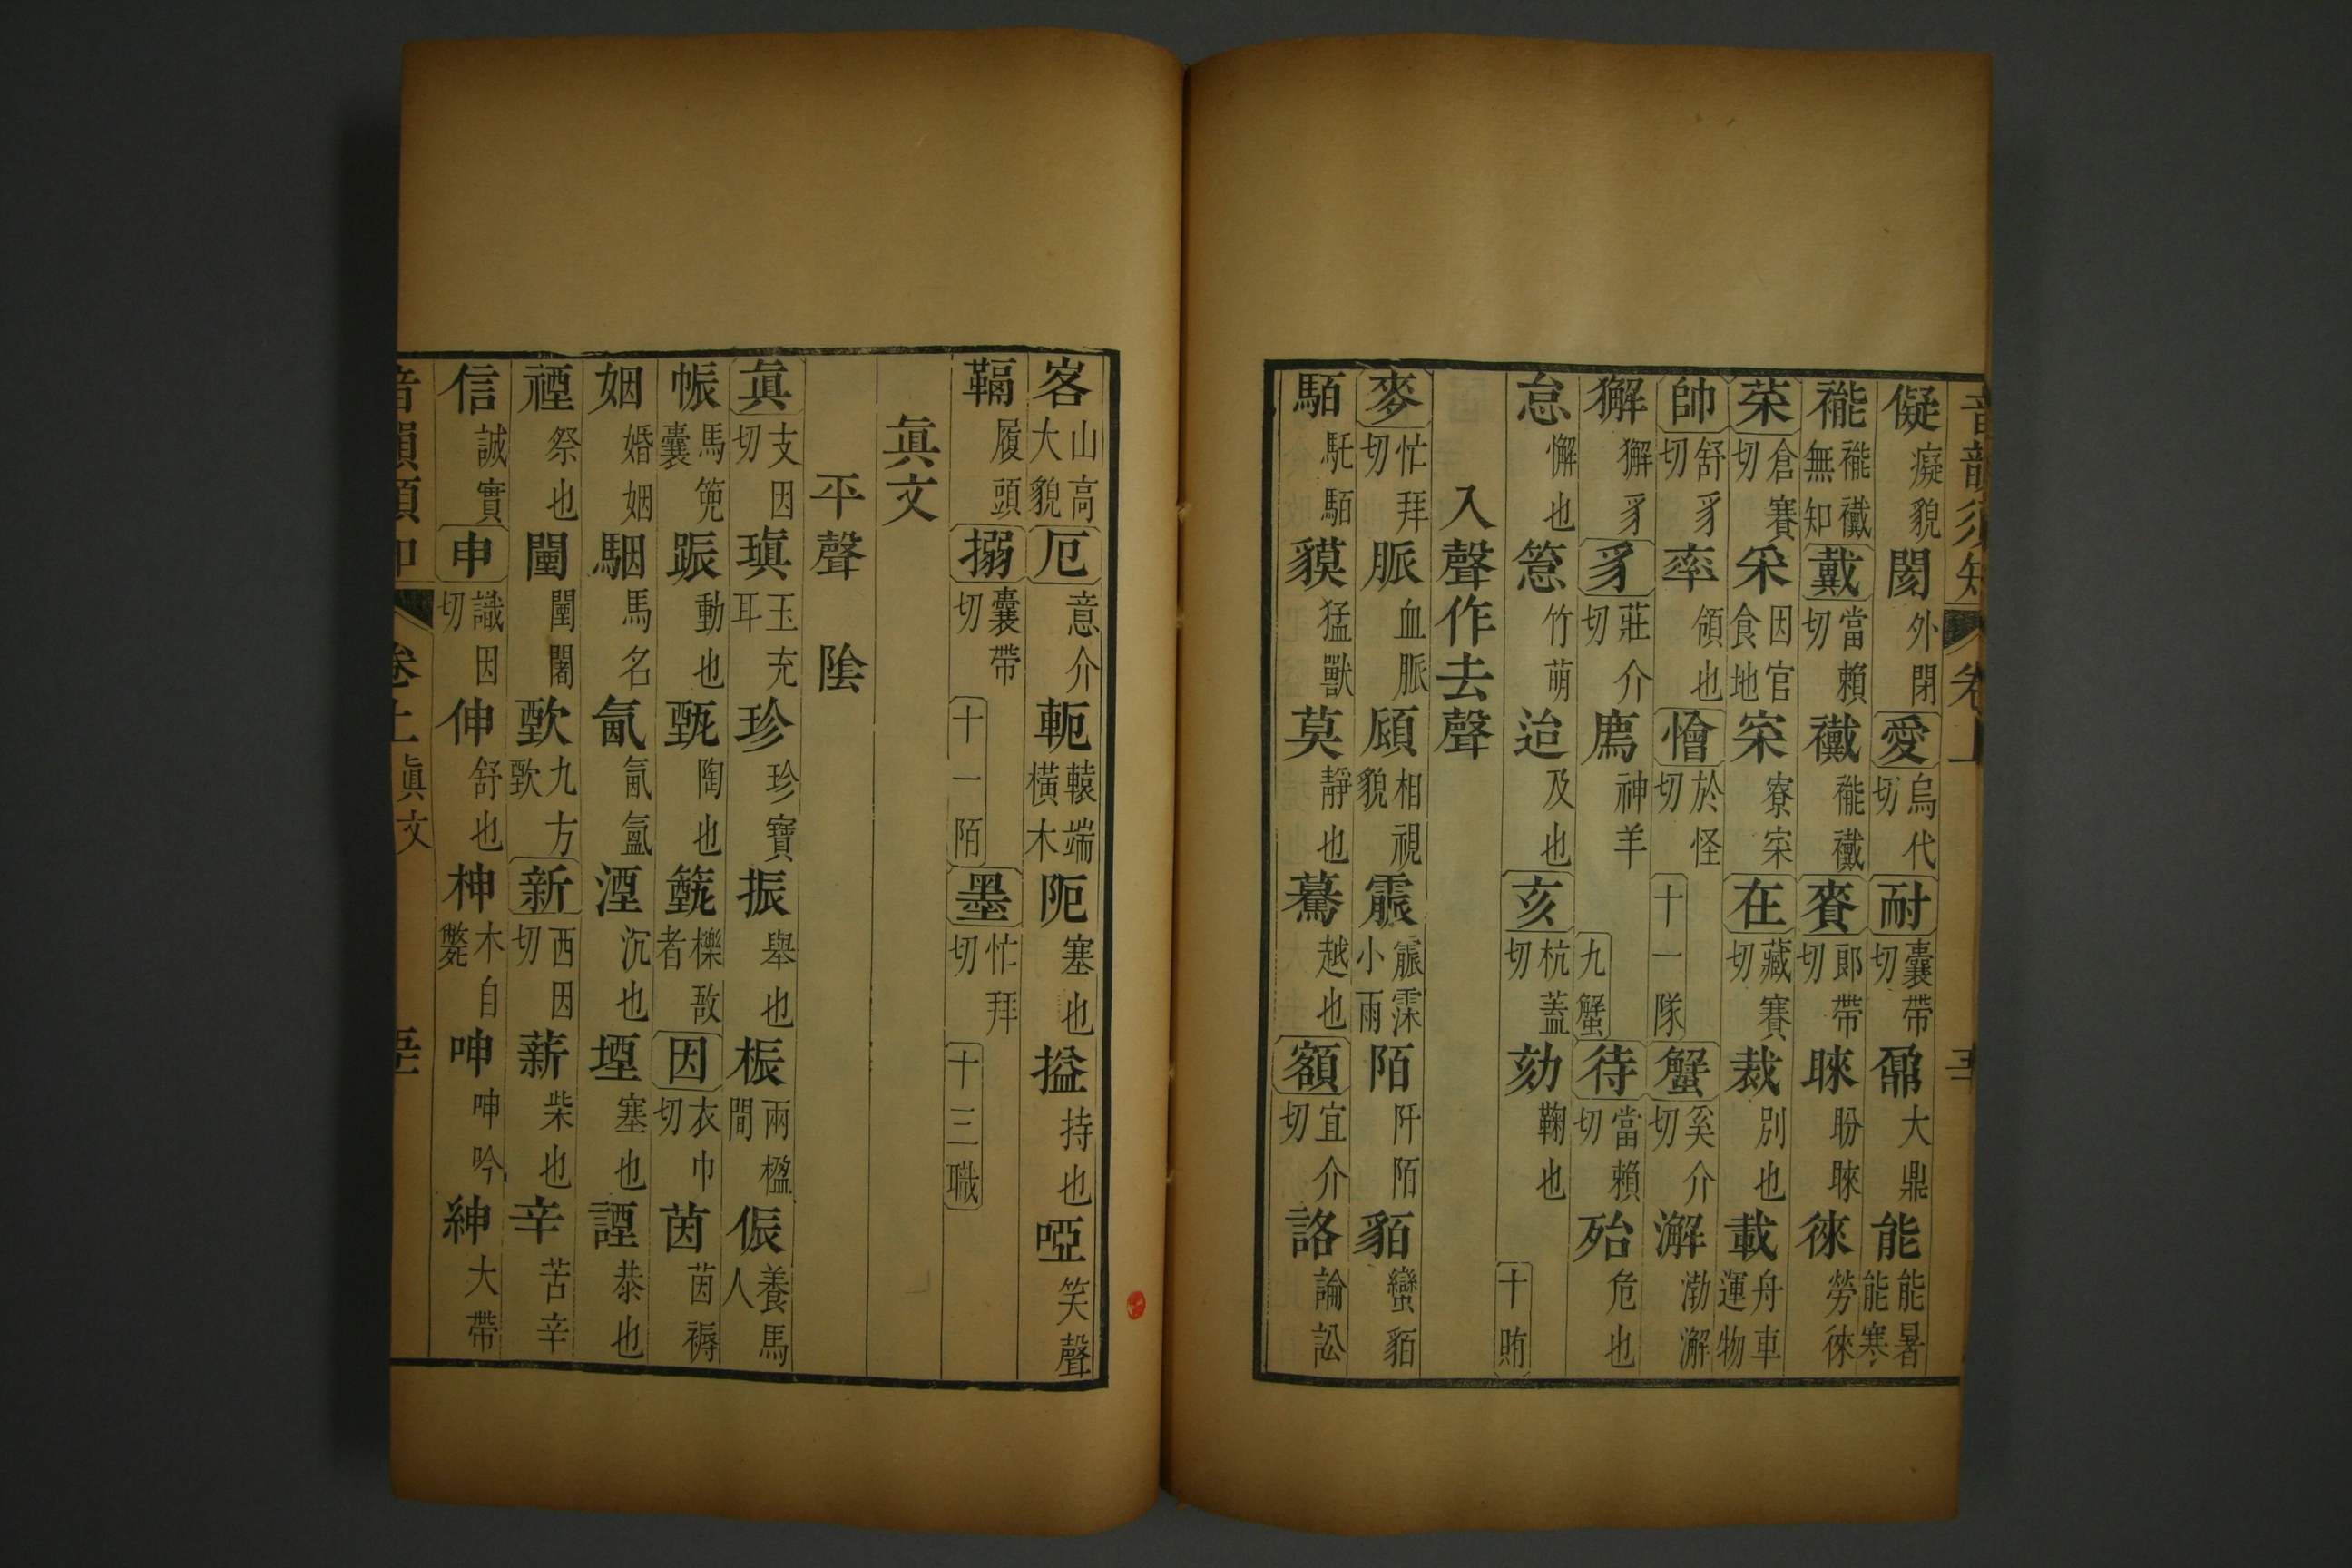 音韻須知 卷上
儗癡貌閡外閉愛烏代切耐囊帶切鼐大鼎能能暑能寒
褦褦襶無知戴當賴切襶褦襶賚郎帶切睞盼睞徠勞徠
菜倉賽切采因官食地寀寮寀在藏賽切裁別也載舟車運物
帥舒豸切率領也懀於怪切十一隊蟹奚介切澥渤澥
獬獬豸豸莊介切廌神羊九蟹待當賴切殆危也
怠懈也箈竹萌迨及也亥杭蓋切劾鞠也十賄
入聲作去聲
麥忙拜切脈血脈𩑷相視貌霢霢霂小雨陌阡陌貊蠻貊
䮂馲䮂貘猛獸莫靜也驀越也額宜介切詻論訟
峉山高大貌厄意介切軛轅端橫木阨塞也搤持也啞笑聲
䩹履頭搦囊帶切十一陌墨忙拜切十三職
眞文
平聲 陰
眞支因切瑱玉充耳珍珍寶振舉也桭兩楹間侲養馬人
帪馬兜囊蹍動也甄陶也籈櫟敔者因衣巾切茵茵褥
姻婚姻駰馬名氤氤氳湮沉也堙塞也諲恭也
禋祭也闉闉闍歅九方歅新西因切薪柴也辛苦辛
信誠實申識因切伸舒也柛木自斃呻呻吟紳大帶
音韻須知 卷上眞文